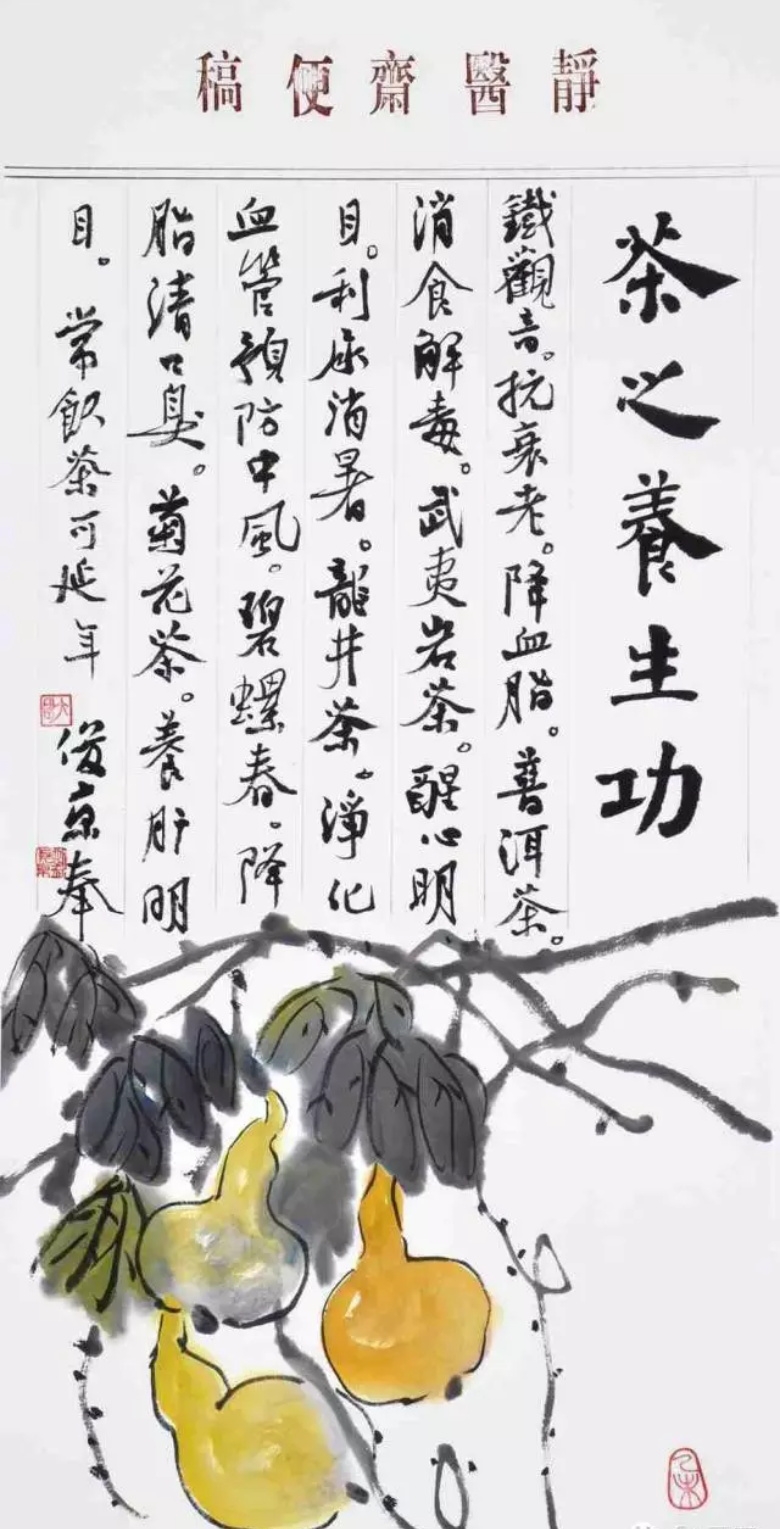 靜醫齋便稿
茶之養生功
鐵觀音。抗衰老。降血脂。普洱茶。
消食解毒。武夷岩茶。醒心明
目。利尿消暑。龍井茶。淨化
血管預防中風。碧螺春。降
脂清口臭。菊花茶。養肝明
目。常飲茶可延年
俊京奉
乙未